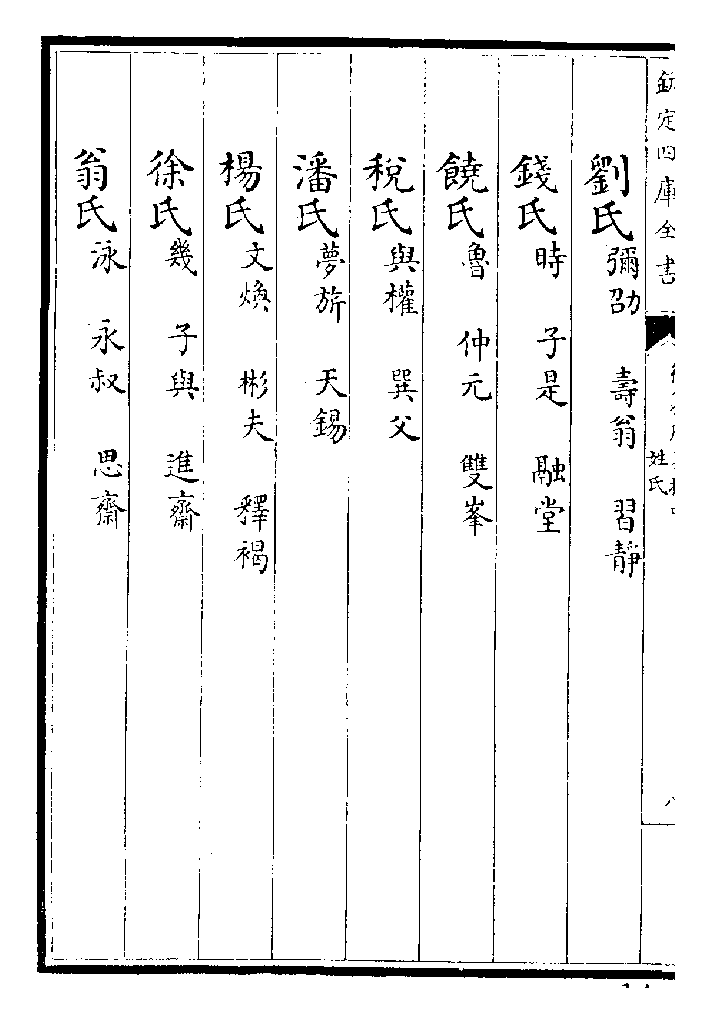 欽定四庫全書
姓氏
八
劉氏彌邵 壽翁 習靜
錢氏時 子是 融堂
饒氏魯 仲元 雙峯
稅氏與權 巽父
潘氏夢旂 天錫
楊氏文煥 彬夫 釋褐
徐氏幾 子與 進齋
翁氏泳 永叔 思齋